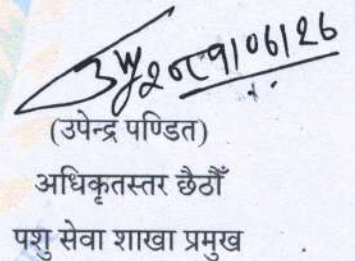 २०८१/०६/२६
(उपेन्द्र पण्डित)
अधिकृतस्तर छैठौँ
पशु सेवा शाखा प्रमुख